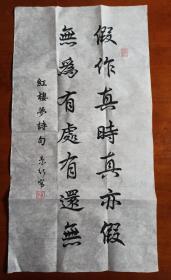 假作真時真亦假
無為有處有還無
紅樓夢詩句